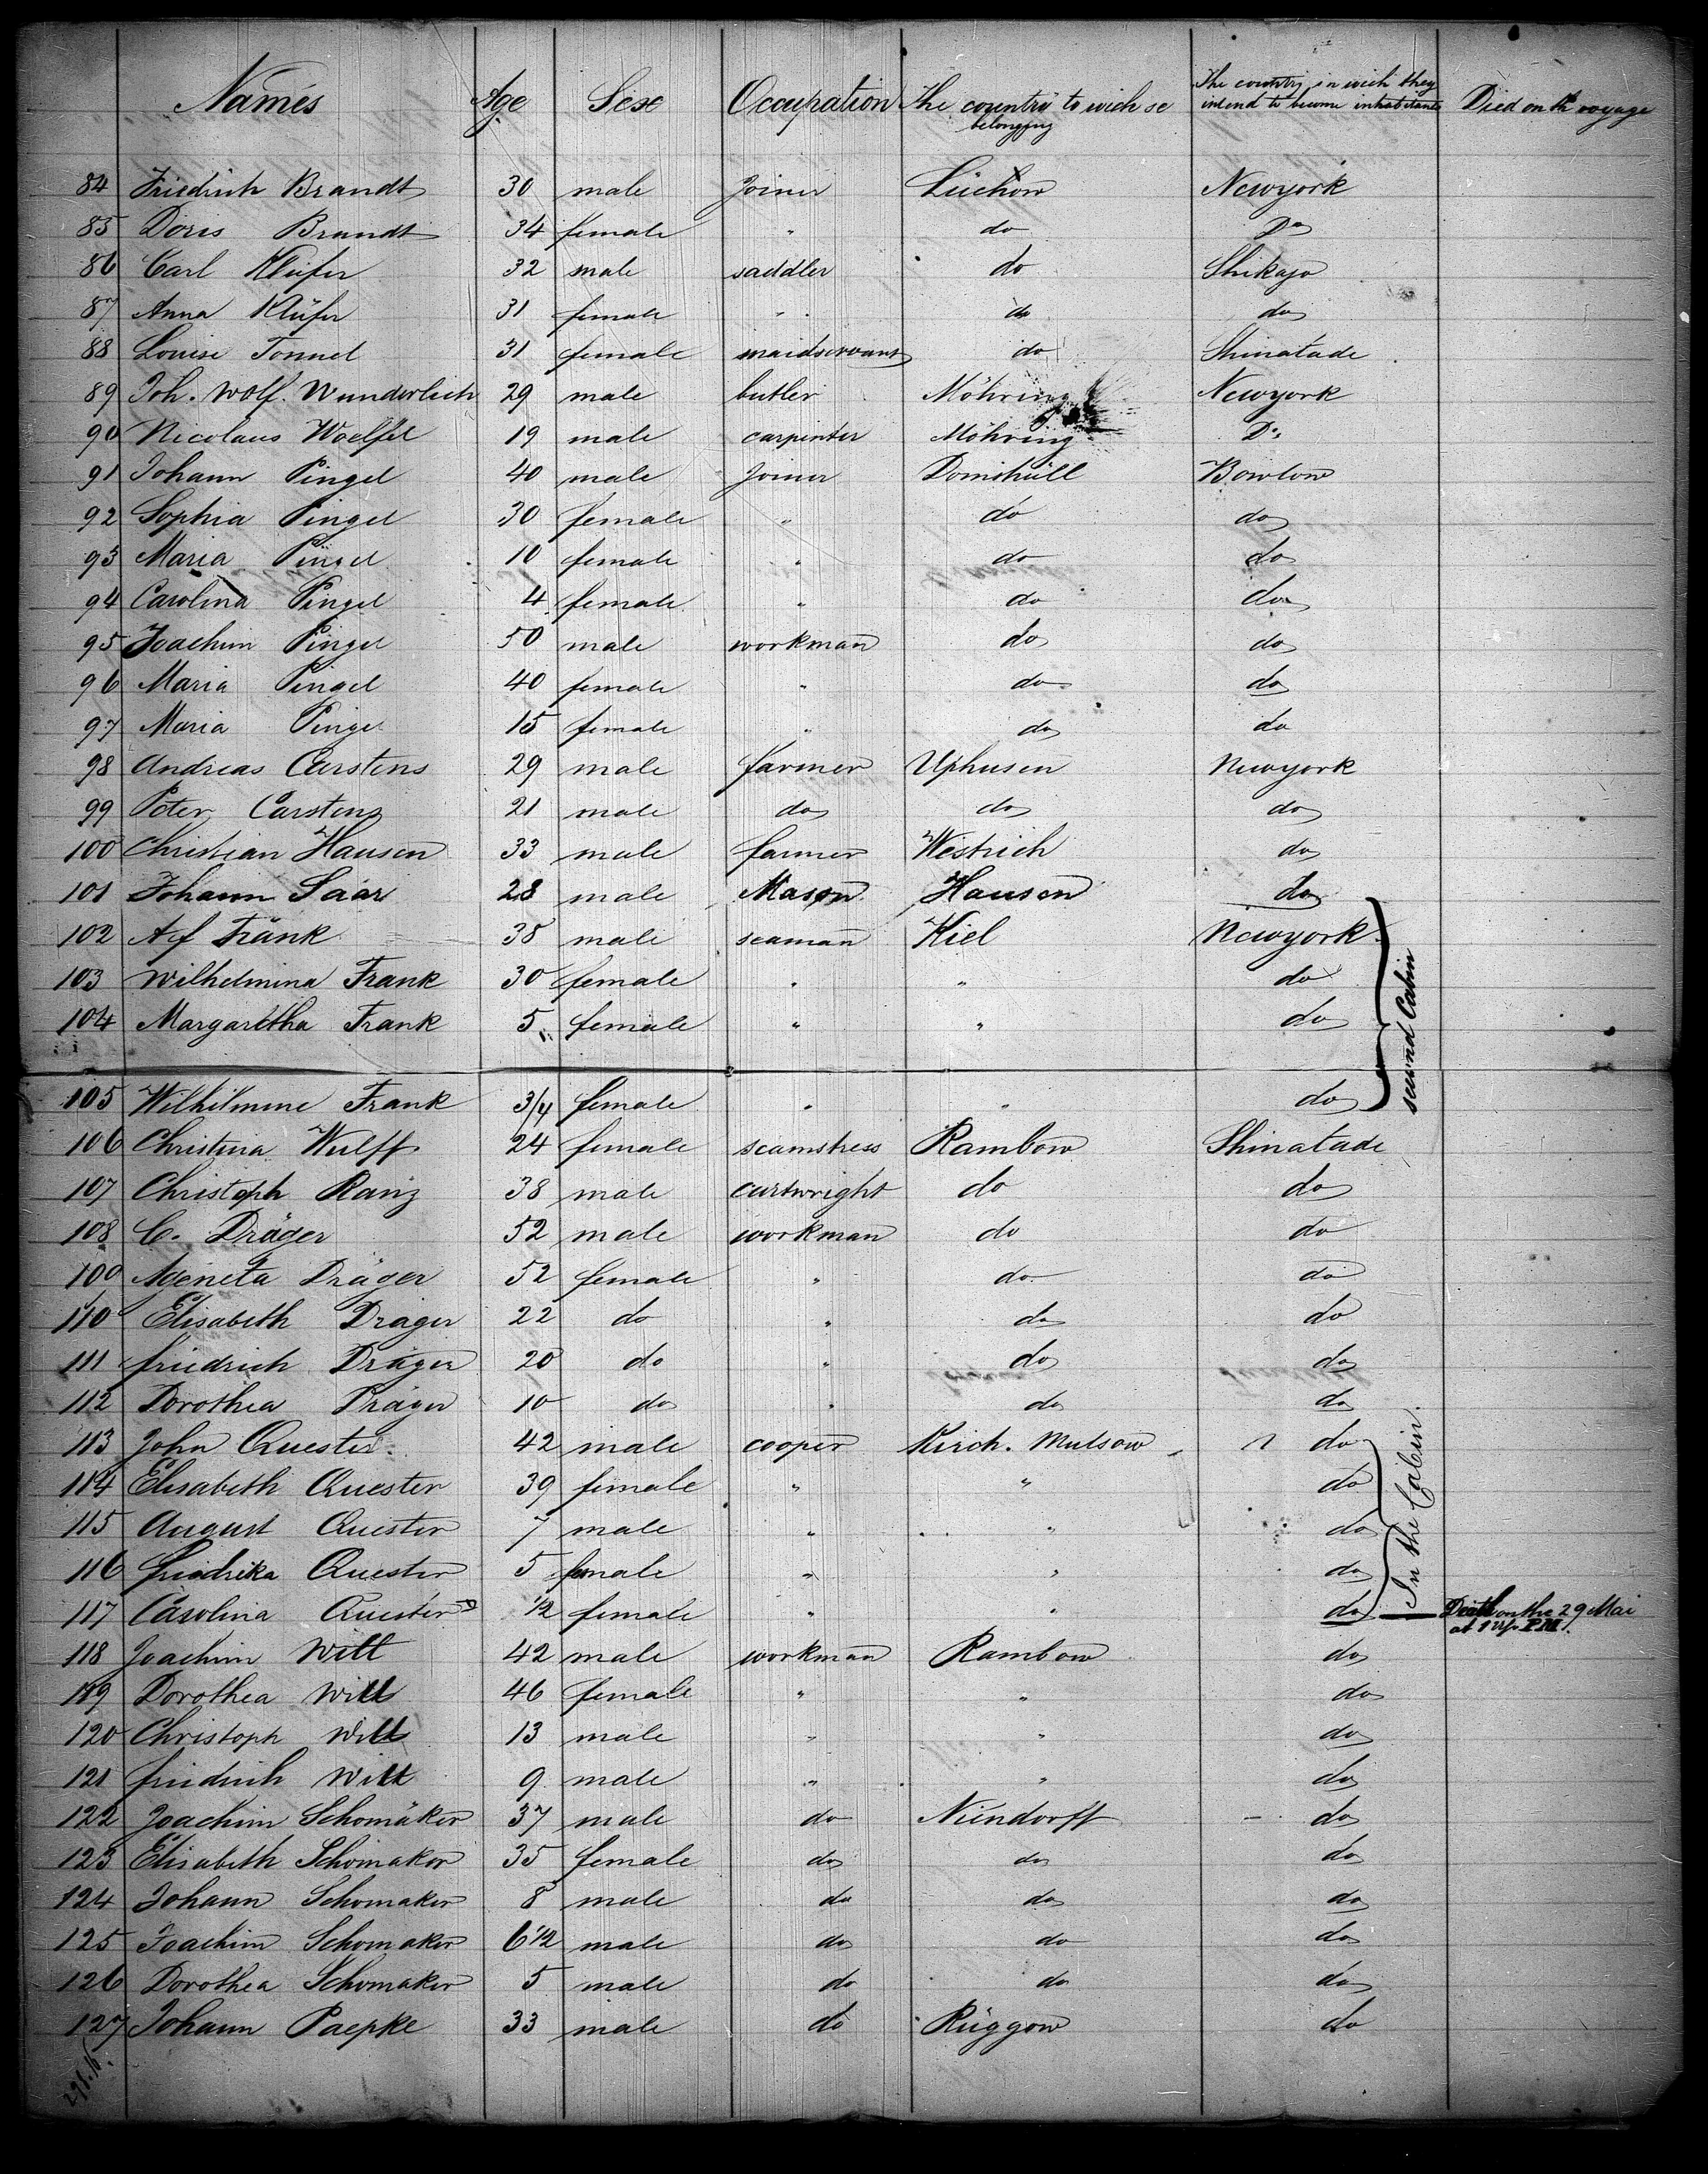 Names Age Sex Occupation The country to wich se belonging The country in wich they intend to become inhabitants Died on the voyage
84 Friedrich Brandt 30 male Joiner Lüchow Newyork
85 Doris Brandt 34 female " do Do
86 Carl Klüfer 32 male saddler do Shikago
87 Anna Klüfer 31 female " do do
88 Louise Tonnel 31 female maidservant do Shinatade
89 Joh. Wolf. Wunderlich 29 male butler Möhring Newyork
90 Nicolaus Woelfel 19 male carpinter Möhring Do
91 Johann Pingel 40 male Joiner Domshüll Bowlow
92 Sophia Pingel 30 female " do do
93 Maria Pingel 10 female " do do
94 Carolina Pingel 4 female " do do
95 Joachim Pingel 50 male workman do do
96 Maria Pingel 40 female " do do
97 Maria Pingel 15 female " do do
98 Andreas Carstens 29 male farmer Uphusen Newyork
99 Peter Carstens 21 male do do do
100 Christian Hansen 33 male farmer Westrich do
101 Johann Saar 28 male Mason Hausen do
102 Frank 38 male seaman Kiel Newyork
103 Wilhelmina Frank 30 female " " do
104 Margaretha Frank 5 female " " do
second Cabin
105 Wilhelmine Frank 3/4 female " " do
106 Christina Wulff 24 female seamstress Rambow Shinatade
107 Christoph Ranz 38 male cartwright do do
108 C. Dräger 52 male workman do do
109 Ageneta Dräger 52 female " do do
110 Elisabeth Dräger 22 do " do do
111 friedrich Dräger 20 do " do do
112 Dorothea Dräger 10 do " do do
113 John Quester 42 male cooper Kirch. Mulsow do
114 Elisabeth Quester 39 female " " do
115 August Quester 7 male " " do
In the Cabin.
116 friedrika Quester 5 female " " do
117 Carolina Quester 1/2 female " " do Death on the 29 Mai at PM.
118 Joachim Witt 42 male workman Rambow do
119 Dorothea Witt 46 female " " do
120 Christoph Witt 13 male " " do
121 friedrich Witt 9 male " " do
122 Joachim Schomäker 37 male do Niendorff do
123 Elisabeth Schomaker 35 female do do do
124 Johann Schomaker 8 male do do do
125 Joachim Schomaker 6 1/2 male do do do
126 Dorothea Schomaker 5 male do do do
127 Johann Paepke 33 male do Rüggow do